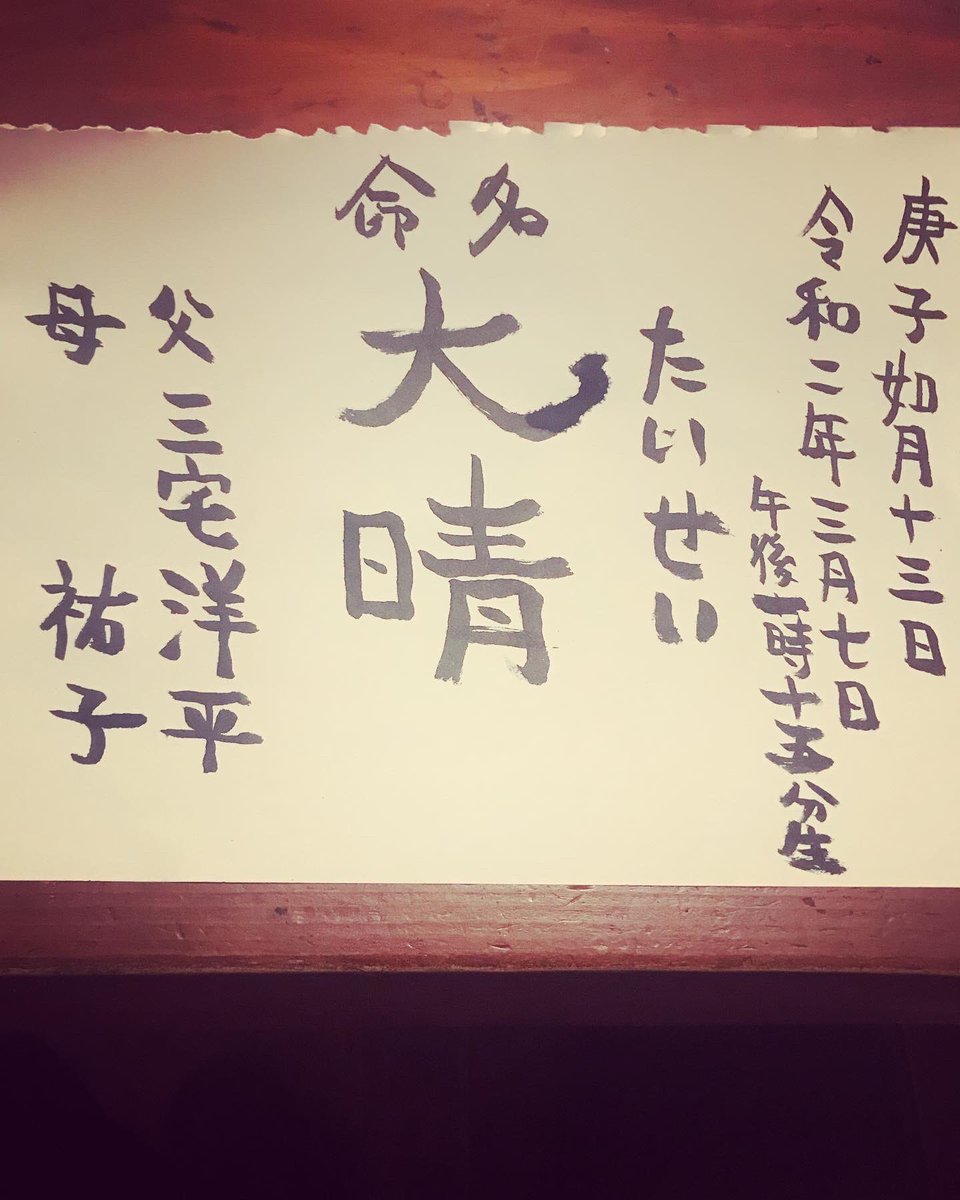 庚子如月十三日
令和二年三月七日
午後一時十五分生
たいせい
命名
大晴
父 三宅洋平
母 祐子